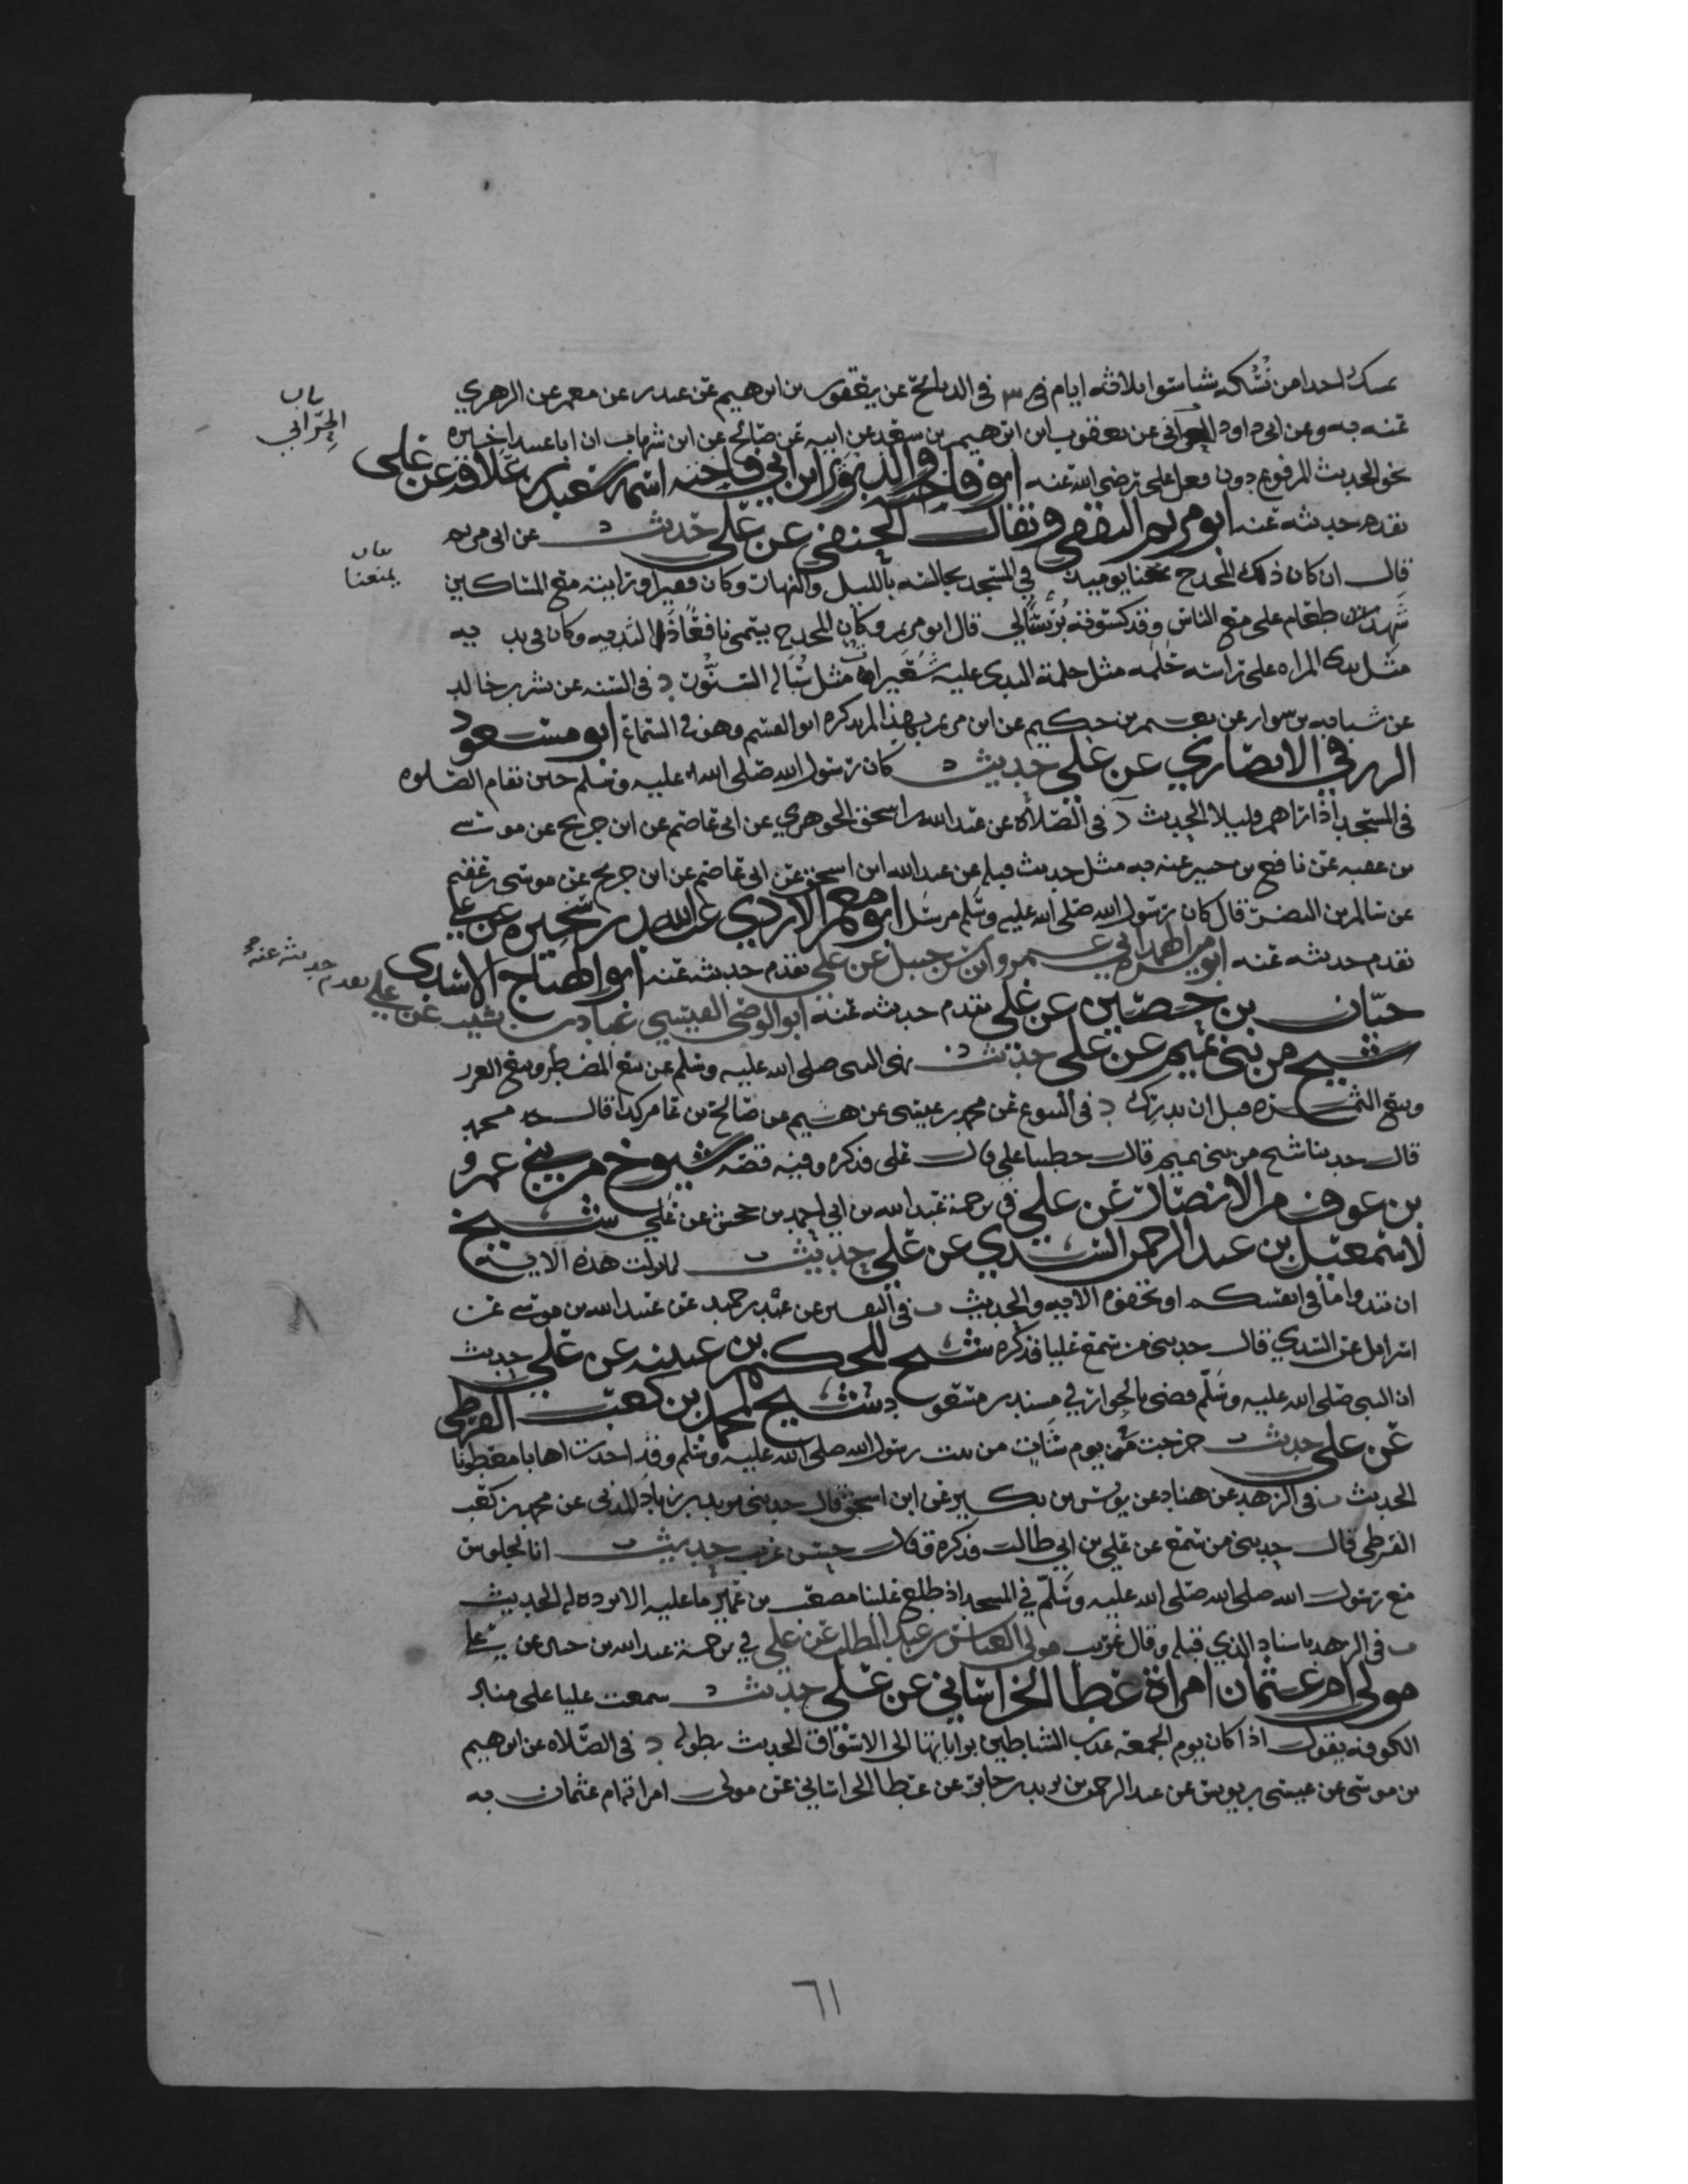 يمسك احدا من نسكه شيا سوى ثلاثة ايام في ٣ في الذبائح عن يعقوب بن ابرهيم عن غندر عن معمر عن الزهري
عنه به وعن ابي داود الحراني عن يعقوب ابن ابرهيم بن سعد عن ابيه عن صالح عن ابن شهاب ان ابا عبيد اخبره
بيان الحراني
نحو الحديث المرفوع دون فعل علي رضي الله عنه ابو فاختة والد ثوير ابن ابي فاختة اسمه سعيد بن علاقة عن علي
تقدم حديثه عنه ابو مريم الثقفي ويقال الحنفي عن علي حديث د عن ابي مريم
قال ان كان ذلك المخدج معنا يوميذ في المسجد نجالسه بالليل والنهار وكان فقيرا ورايته مع المساكين
بيان لمعنا
شهد طعام علي مع الناس وقد كسوته برنسا لي قال ابو مريم وكان المخدج يسمى نافعا ذا الثديه وكان في يده
مثل ثدي المراه على راسه حلمه مثل حلمة الثدي عليه شعيرات مثل سبالة السنور د في السنه عن بشر بن خالد
عن شبابه بن سوار عن نعيم بن حكيم عن ابي مريم بهذا لم يذكره ابو القسم وهو في السماع ابو مسعود
الزرقي الانصاري عن علي حديث د كان رسول الله صلى الله عليه وسلم حين تقام الصلوه
في المسجد اذا راهم قليلا الحديث د في الصلاه عن عبد الله بن اسحق الجوهري عن ابي عاصم عن ابن جريج عن موسى
بن عقبه عن نافع بن جبير عنه به مثل حديث قبله عن عبد الله ابن اسحق عن ابي عاصم عن ابن جريج عن موسى بن عقبه
عن سالم بن النضر قال كان رسول الله صلى الله عليه وسلم مرسل ابو معمر الازدي عبد الله بن سخبره عن علي
تقدم حديثه عنه ابو ميسره الهمداني عمرو ابن شرحبيل عن علي تقدم حديثه عنه ابو الهياج الاسدي
حيان بن حصين عن علي تقدم حديثه عنه ابو الوضي القيسي عباد بن نسيب عن علي تقدم حديثه عنه
شيخ من بني تميم عن علي حديث د نهى النبي صلى الله عليه وسلم عن بيع المضطر وبيع الغرر
وبيع الثمره قبل ان تدرك د في البيوع عن محمد بن عيسى عن هشيم عن صالح بن عامر كذا قال محمد
قال حدثنا شيخ من بني تميم قال خطبنا علي قال علي فذكره وفيه قصه شيوخ من بني عمرو
بن عوف من الانصار عن علي في ترجمة عبد الله بن ابي احمد بن جحش عن علي شيخ
لاسمعيل بن عبد الرحمن السدي عن علي حديث ت لما نزلت هذه الايه
ان تبدوا ما في انفسكم او تخفوه الايه والحديث ت في التفسير عن عبد بن حميد عن عبيد الله بن موسى عن
اسرايل عن السدي قال حدثني من سمع عليا فذكره شيخ للحكم بن عتيبه عن علي حديث
ان النبي صلى الله عليه وسلم قضى بالجوار في مسند بن مسعود د شيخ لمحمد بن كعب القرظي
عن علي حديث ت خرجت في يوم شات من بيت رسول الله صلى الله عليه وسلم وقد اخذت اهابا معطونا
الحديث ت في الزهد عن هناد عن يونس بن بكير عن ابن اسحق قال حدثني يزيد بن زياد المدني عن محمد بن كعب
القرظي قال حدثني من سمع عن علي بن ابي طالب فذكره وقال حسن غريب حديث ت انا لجلوس
مع رسول الله صلى الله صلى الله عليه وسلم في المسجد اذ طلع علينا مصعب بن عمير ما عليه الا برده له الحديث
ت في الزهد باسناد الذي قبله وقال غريب مولى العباس بن عبد المطلب عن علي في ترجمة عبد الله بن حنين عن علي
مولى ام عثمان امراة عطا الخراساني عن علي حديث د سمعت عليا على منبر
الكوفه يقول اذا كان يوم الجمعه غدت الشياطين براياتها الى الاسواق الحديث بطوله د في الصلاه عن ابرهيم
بن موسى عن عيسى بن يونس عن عبد الرحمن بن يزيد بن جابر عن عطا الخراساني عن مولى امراته ام عثمان به
٦١